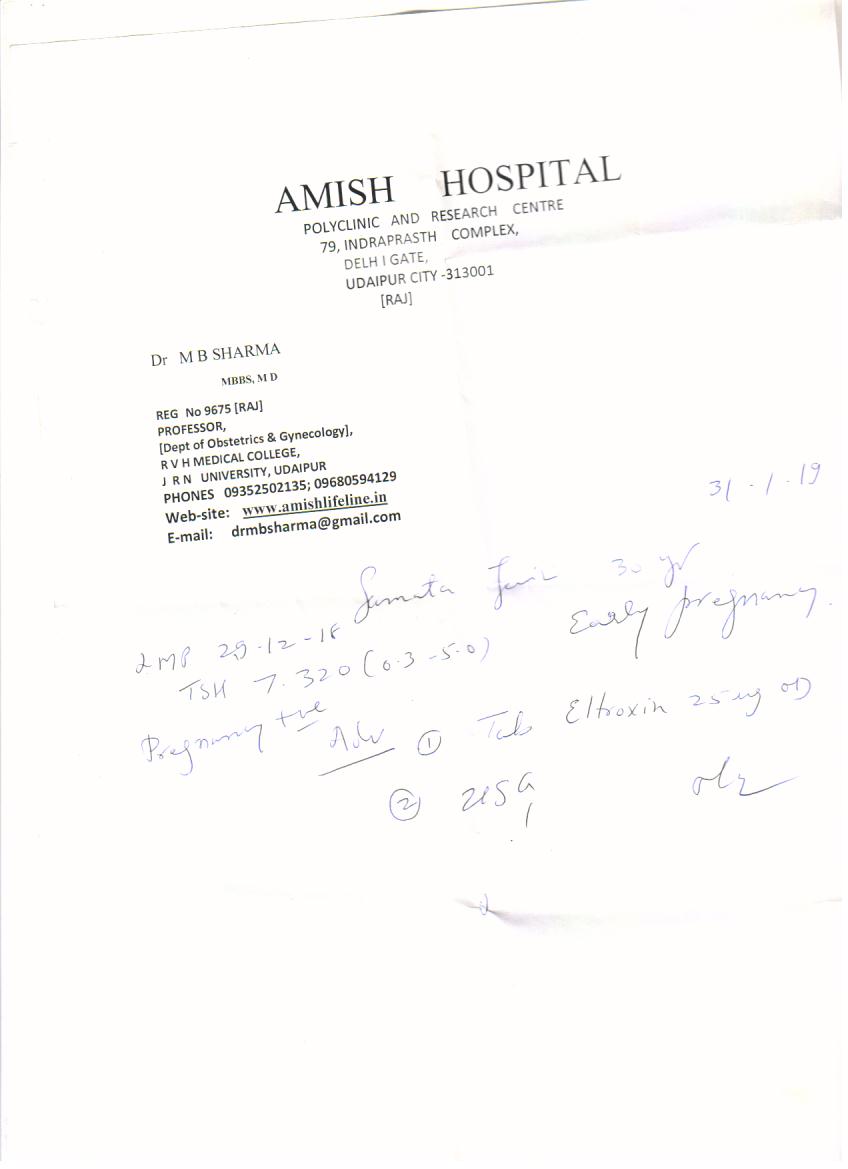 AMISH HOSPITAL
POLYCLINIC AND RESEARCH CENTRE
79, INDRAPRASTH COMPLEX,
DELH I GATE,
UDAIPUR CITY -313001
[RAJ]
Dr M B SHARMA
MBBS, M D
REG No 9675 [RAJ]
PROFESSOR,
[Dept of Obstetrics & Gynecology],
R V H MEDICAL COLLEGE,
J R N UNIVERSITY, UDAIPUR
PHONES 09352502135; 09680594129
Web-site: www.amishlifeline.in
E-mail: drmbsharma@gmail.com
31-1-19
30 yr
LMP 29-12-18 Early pregnancy.
TSH 7.320 (0.3-5.0)
Pregnancy +ve
Adv ① Tab Eltroxin 25 ug OD
② USG